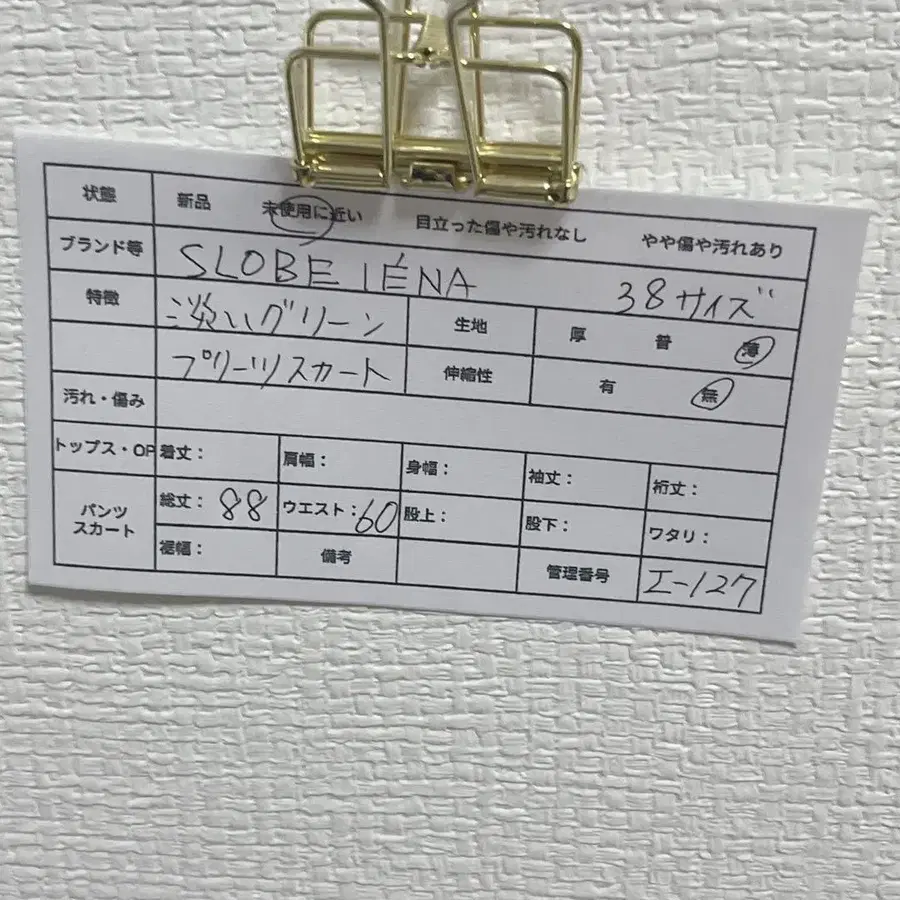 状態 新品 未使用に近い 目立った傷や汚れなし やや傷や汚れあり
ブランド等 SLOBE IÉNA 38サイズ
特徴 淡いグリーン 生地 厚 普 薄
プリーツスカート 伸縮性 有 無
汚れ・傷み
トップス・OP 着丈： 肩幅： 身幅： 袖丈： 裄丈：
パンツ スカート 総丈：88 ウエスト：60 股上： 股下： ワタリ：
裾幅： 備考 管理番号 エ-127